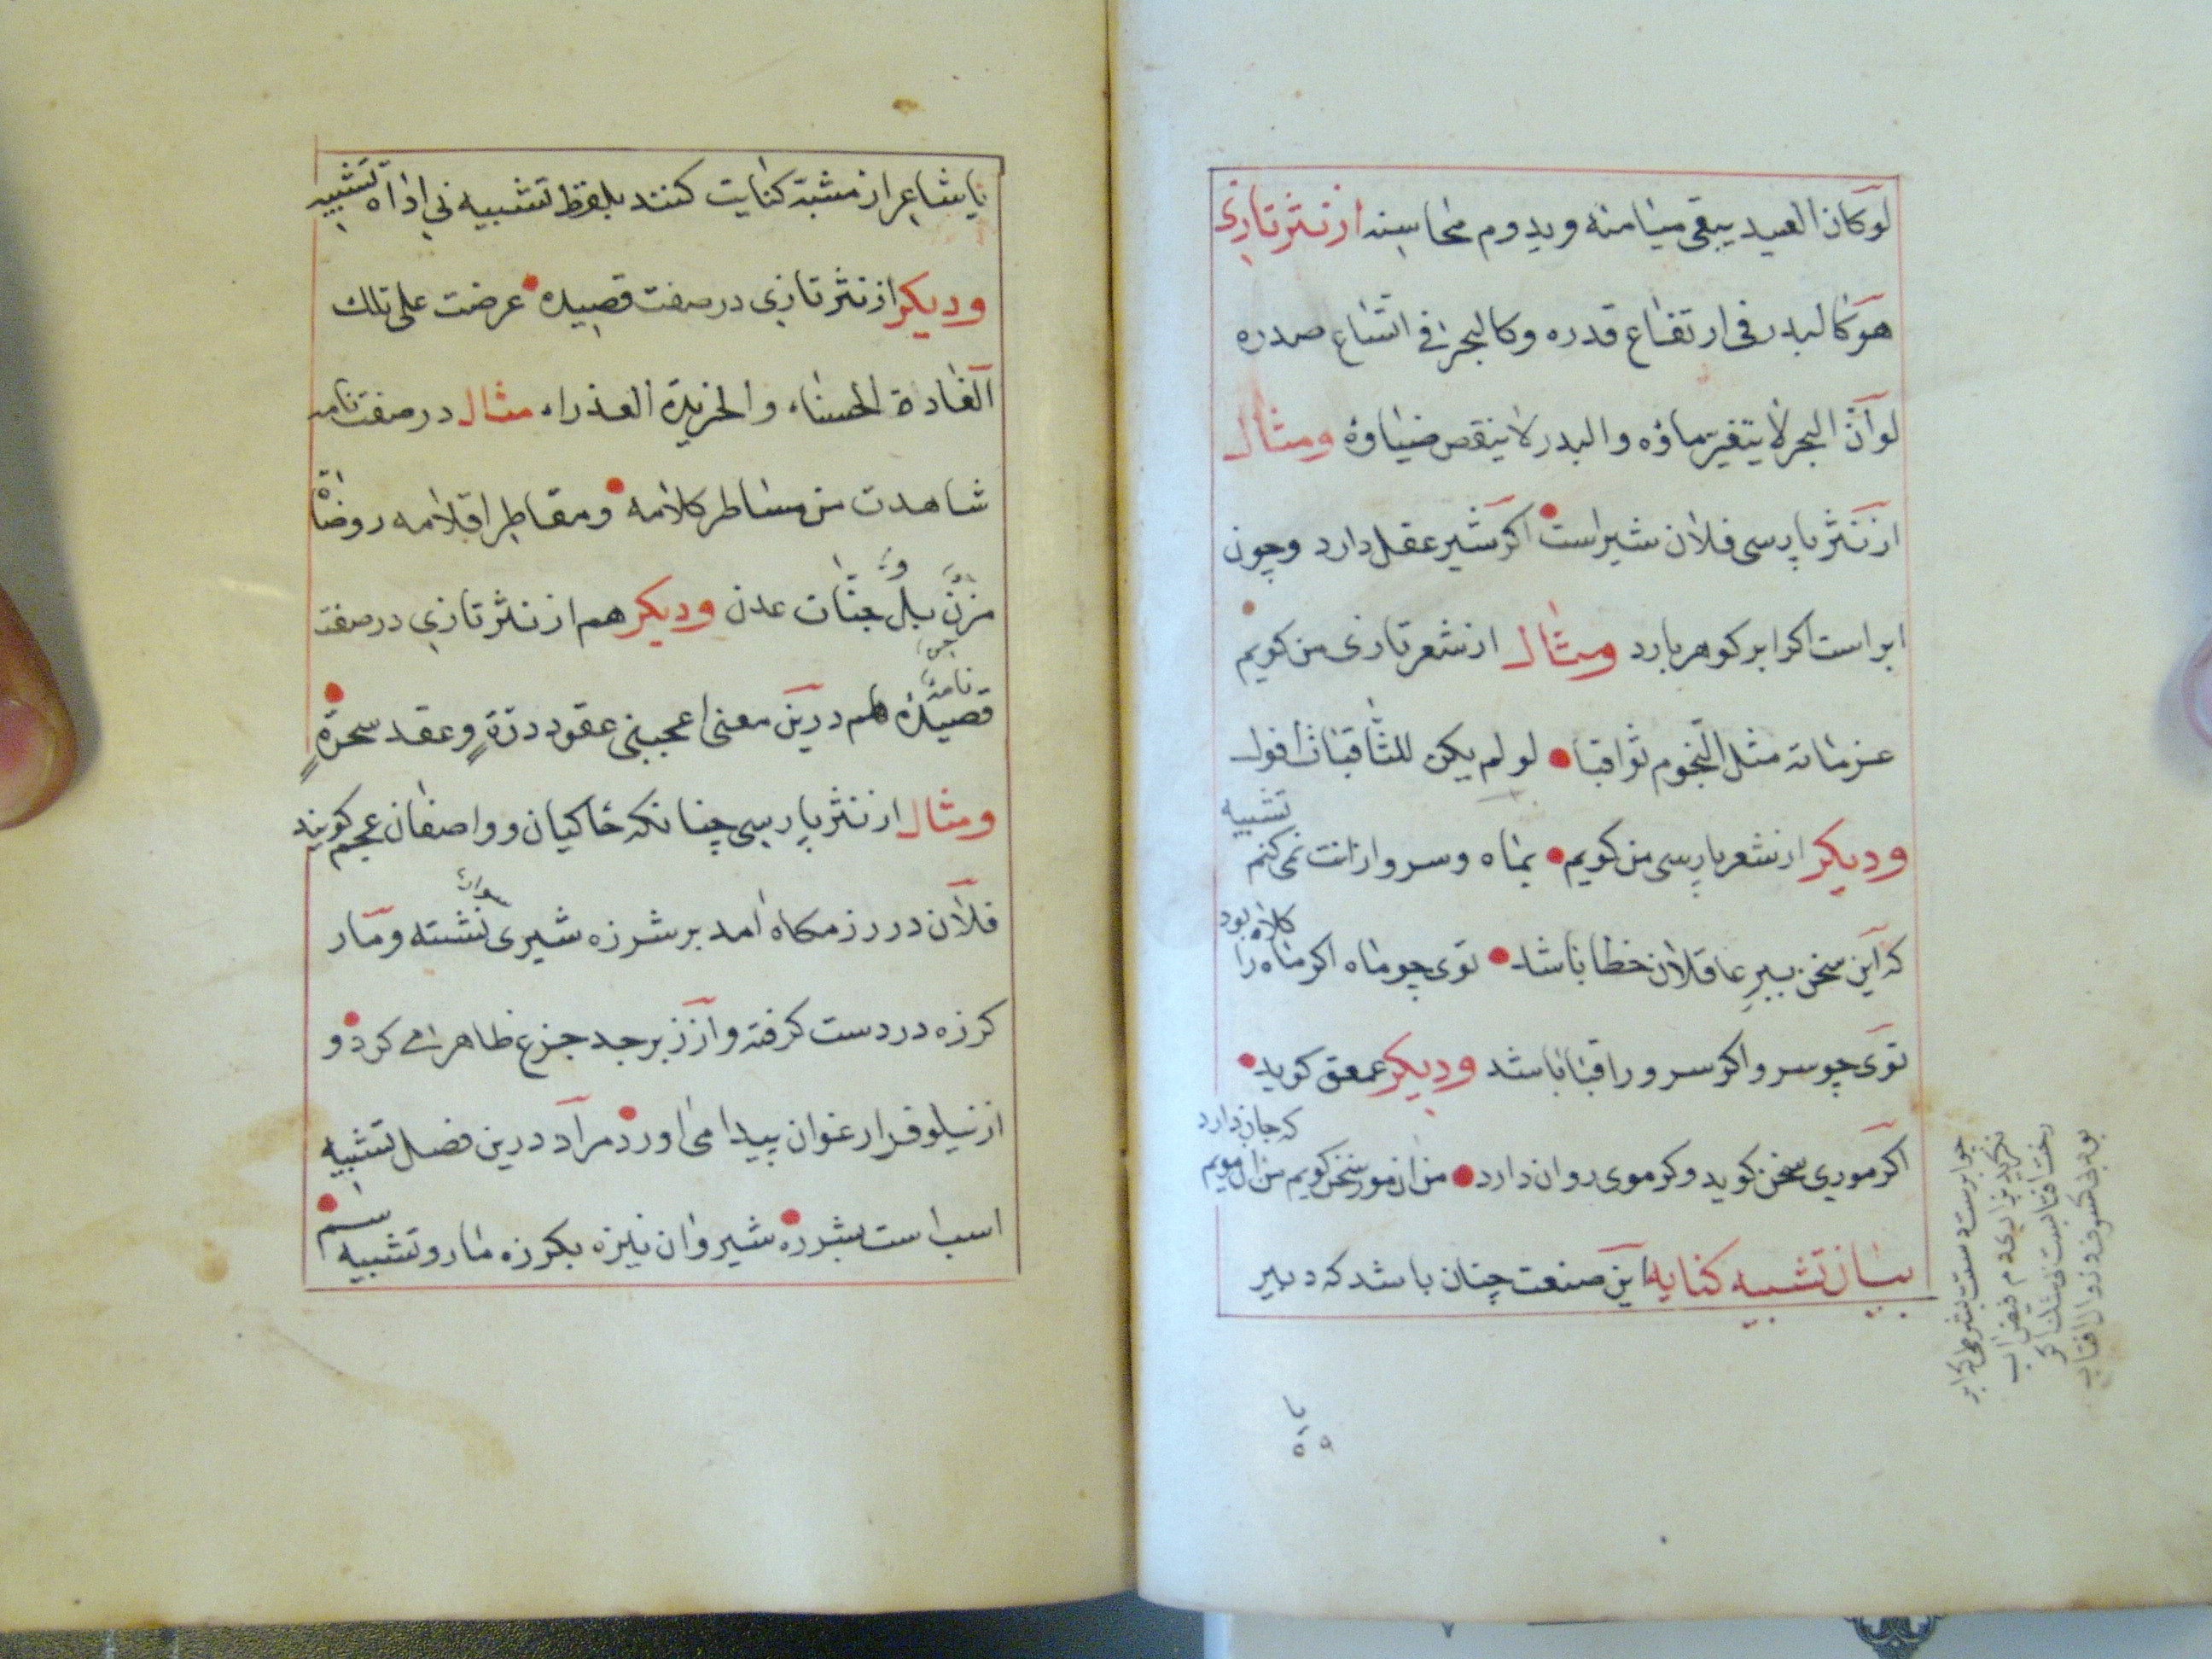 لو كان العيد يبقى ميامنه ويدوم محاسنه از نثر تازى
هو كالبدر فى ارتفاع قدره وكالبحر فى اتساع صدره
لو انّ البحر لا يتغير ماؤه والبدر لا ينقص ضياؤه ومثال
از نثر پارسى فلان شيراست اكر شير عقل دارد وچون
ابراست اكر ابر كوهر بارد ومثال از شعر تازى من كويم
عزماته مثل النّجوم ثواقبا لو لم يكن للثاقبات افول
وديكر از شعر پارسى من كويم بماه وسرو ازانت نمى كنم تشبيه
كه اين سخن ببر عاقلان خطا باشد توى چو ماه اكر ماه را كلاه بود
توى چو سرو اكر سرو را قبا باشد وديكر عمعق كويد
اكر مورى سخن كويد وكر موى روان دارد من ان مور سخن كويم من ان مويم كه جان دارد
بيان تشبيه كنايه اين صنعت چنان باشد كه دبير
يا
يا شاعر از مشبه كنايت كنند بلفظ تشبيه بى اداة تشبيه
وديكر از نثر تازى در صفت قصيده عرضت على تلك
الغادة الحسناء والخريدة العذراء مثال در صفت نامه
شاهدت من مساطر كلامه ومقاطر اقلامه روضاة
مزن بل جنّات عدن وديكر هم از نثر تازى در صفت
نامه
قصيده هم درين معنى اعجبنى عقود درّة وعقد سحرة
ومثال از نثر پارسى چنانكه حاكيان وواصفان عجم كويند
فلان در رزمكاه امد بر شرزه شيرى نشسته ومار
كرزه در دست كرفته واز زبرجد جزع ظاهر مى كرد و
از نيلوفر ارغوان پيدا مى اورد مراد درين فصل تشبيه
اسب است بشرزه شير وان نيزه بكرزه مار وتشبيه سم